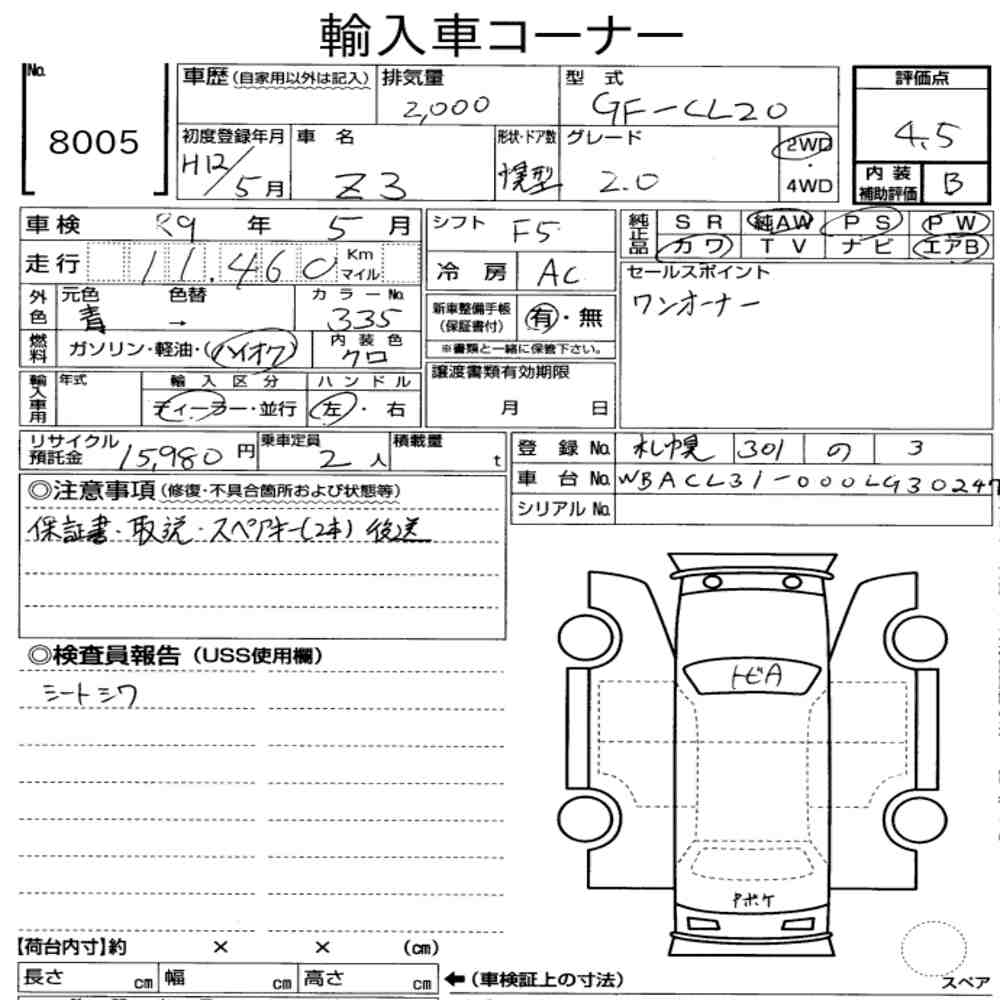 輸入車コーナー
No. 8005
車歴(自家用以外は記入) 排気量 2,000 型式 GF-CL20
評価点 4.5
内装補助評価 B
初度登録年月 H12/5月 車名 Z3 形状・ドア数 グレード 2.0 2WD・4WD
車検 R9年 5月
走行 11,460 Km マイル
外色 元色 青 色替 → カラーNo. 335
燃料 ガソリン・軽油・(ハイオク) 内装色 クロ
輸入車用 年式 輸入区分 ディーラー・並行 ハンドル 左・右
シフト F5
冷房 AC
新車整備手帳(保証書付) 有・無
※書類と一緒に保管下さい。
譲渡書類有効期限
月 日
純正品 SR 純AW PS PW
カワ TV ナビ エアB
セールスポイント
ワンオーナー
リサイクル預託金 15,980円 乗車定員 2人 積載量 t
登録No. 札幌 301 の 3
車台No. WBACL31-000LG30247
シリアルNo.
◎注意事項(修復・不具合箇所および状態等)
保証書・取説・スペアキー(2本) 後送
◎検査員報告(USS使用欄)
シートシワ
トビA
Pボケ
【荷台内寸】約 × × (cm)
長さ cm 幅 cm 高さ cm ←(車検証上の寸法)
スペア